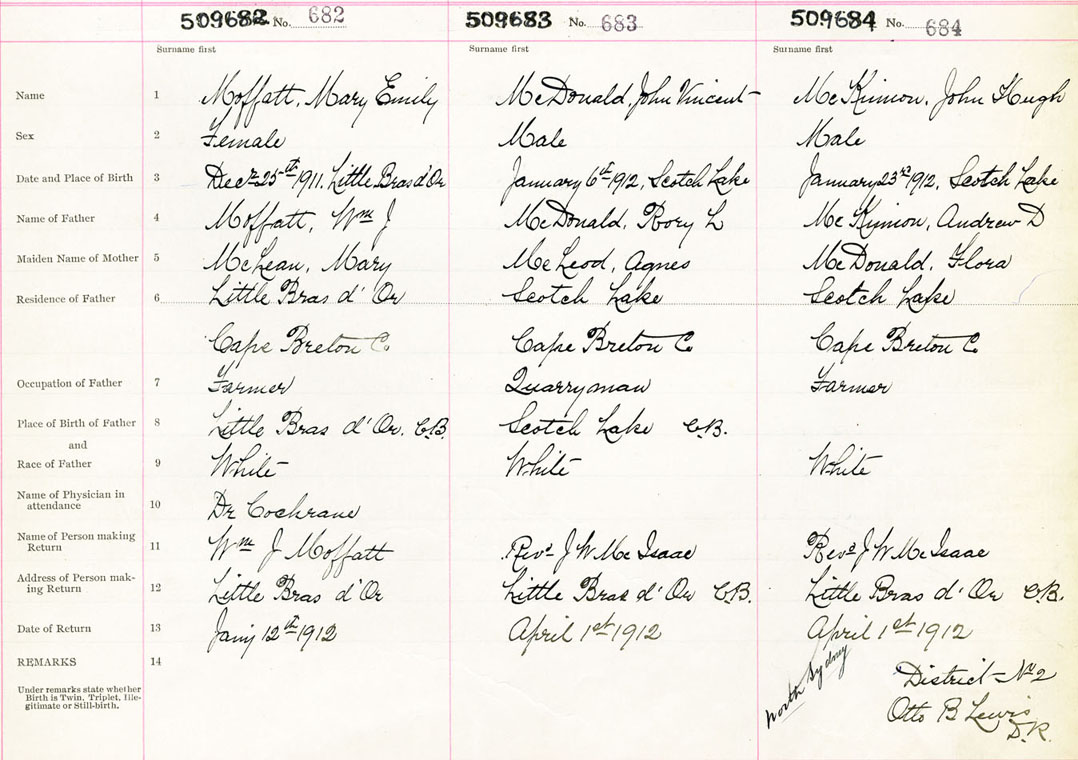 509682 No. 682 509683 No. 683 509684 No. 684
Surname first Surname first Surname first
Name 1 Moffatt, Mary Emily McDonald, John Vincent McKinnon, John Hugh
Sex 2 Female Male Male
Date and Place of Birth 3 Decr 25th 1911. Little Bras d'Or January 6th 1912, Scotch Lake January 23rd 1912, Scotch Lake
Name of Father 4 Moffatt, Wm J McDonald, Rory L McKinnon, Andrew D
Maiden Name of Mother 5 McLean, Mary McLeod, Agnes McDonald, Flora
Residence of Father 6 Little Bras d'Or Scotch Lake Scotch Lake
Cape Breton C. Cape Breton C. Cape Breton C.
Occupation of Father 7 Farmer Quarryman Farmer
Place of Birth of Father 8 Little Bras d'Or. C.B. Scotch Lake C.B.
and
Race of Father 9 White White White
Name of Physician in
attendance 10 Dr Cochrane
Name of Person making
Return 11 Wm J Moffatt Revd J W McIsaac Revd J W McIsaac
Address of Person mak-
ing Return 12 Little Bras d'Or Little Bras d'Or C.B. Little Bras d'Or C.B.
Date of Return 13 Jany 12th 1912 April 1st 1912 April 1st 1912
REMARKS 14
Under remarks state whether
Birth is Twin, Triplet, Ille-
gitimate or Still-birth.
North Sydney
District No 2
Otto B Lewis
D.R.